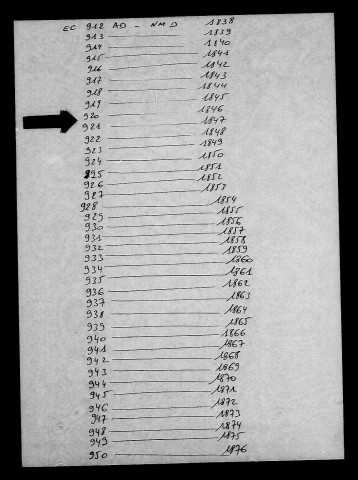 EC 912 AD - NMD 1838
913 1839
914 1840
915 1841
916 1842
917 1843
918 1844
919 1845
920 1846
921 1847
922 1848
923 1849
924 1850
925 1851
926 1852
927 1853
928 1854
929 1855
930 1856
931 1857
932 1858
933 1859
934 1860
935 1861
936 1862
937 1863
938 1864
939 1865
940 1866
941 1867
942 1868
943 1869
944 1870
945 1871
946 1872
947 1873
948 1874
949 1875
950 1876